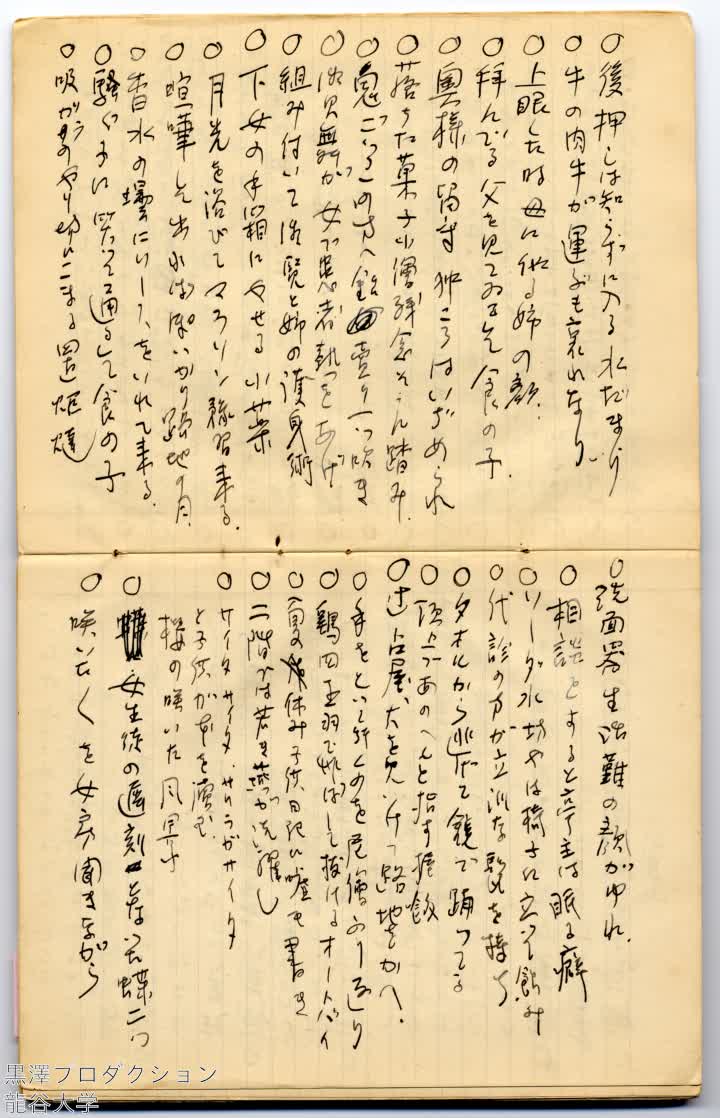 ○後押しは知らずに入る水だまり
○牛の肉牛が運ぶも哀れなり
○上眼した時母に似る姉の顔
○拝んでる父を見てゐる食の子
○奥様の留守狆ころはいぢめられ
○落した菓子小僧残念そうに踏み
○鬼ごつこの方へ飴売り一つ吹き
○組み付いて後見と姉の護身術
○下女の手箱にやせる小菜
○月光を浴びてマンドリン練習来る
○喧嘩して出ればぽつかり路地の月
○香水の場に来る
○騒ぐ子に笑つて通して食の子
○吸がらのやり切にこまる置炬燵
○洗面器生活難の顔がゆれ
○相談をすると亭主は眠る癖
○ソーダ水坊やは椅子に立つて飲み
○代診の方が立派な髭を持ち
○タオルから逃げて鏡で踊つてる
○頂上であのへんと指す握飯
○辻占屋、犬を見つけて路地をかへ
○手をとつて行くのを尼僧ふり返り
○鶏四五羽で飛ばして抜けるオートバイ
○夏休み子供日記に嘘も書き
○二階では若き燕が洗濯し
○サイタサイタ、サクラガサイタ
と子供が本を読む
桜の咲いた風景
○女生徒の遅刻となつた蝶二つ
○咲いたを女房聞きながら
黒澤プロダクション
龍谷大学